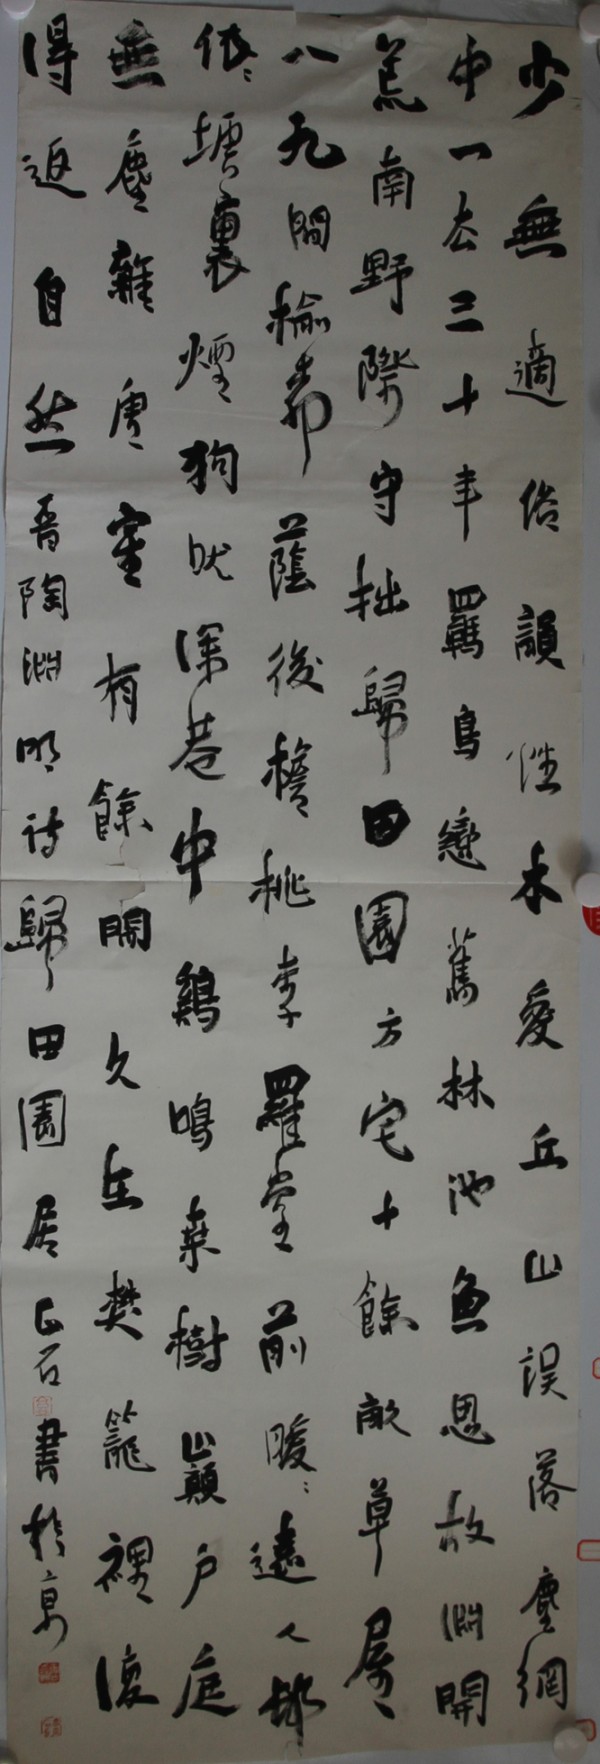 少無適俗韻性本愛丘山誤落塵網
中一去三十年羈鳥戀舊林池魚思故淵開
荒南野際守拙歸田園方宅十餘畝草屋
八九間榆柳蔭後檐桃李羅堂前暧:遠人邨
依:墟裏煙狗吠深巷中鷄鳴桑樹山顛户庭
無塵雜虚室有餘閒久在樊籠裡復
得返自然晋陶淵明詩歸田園居正石書於京